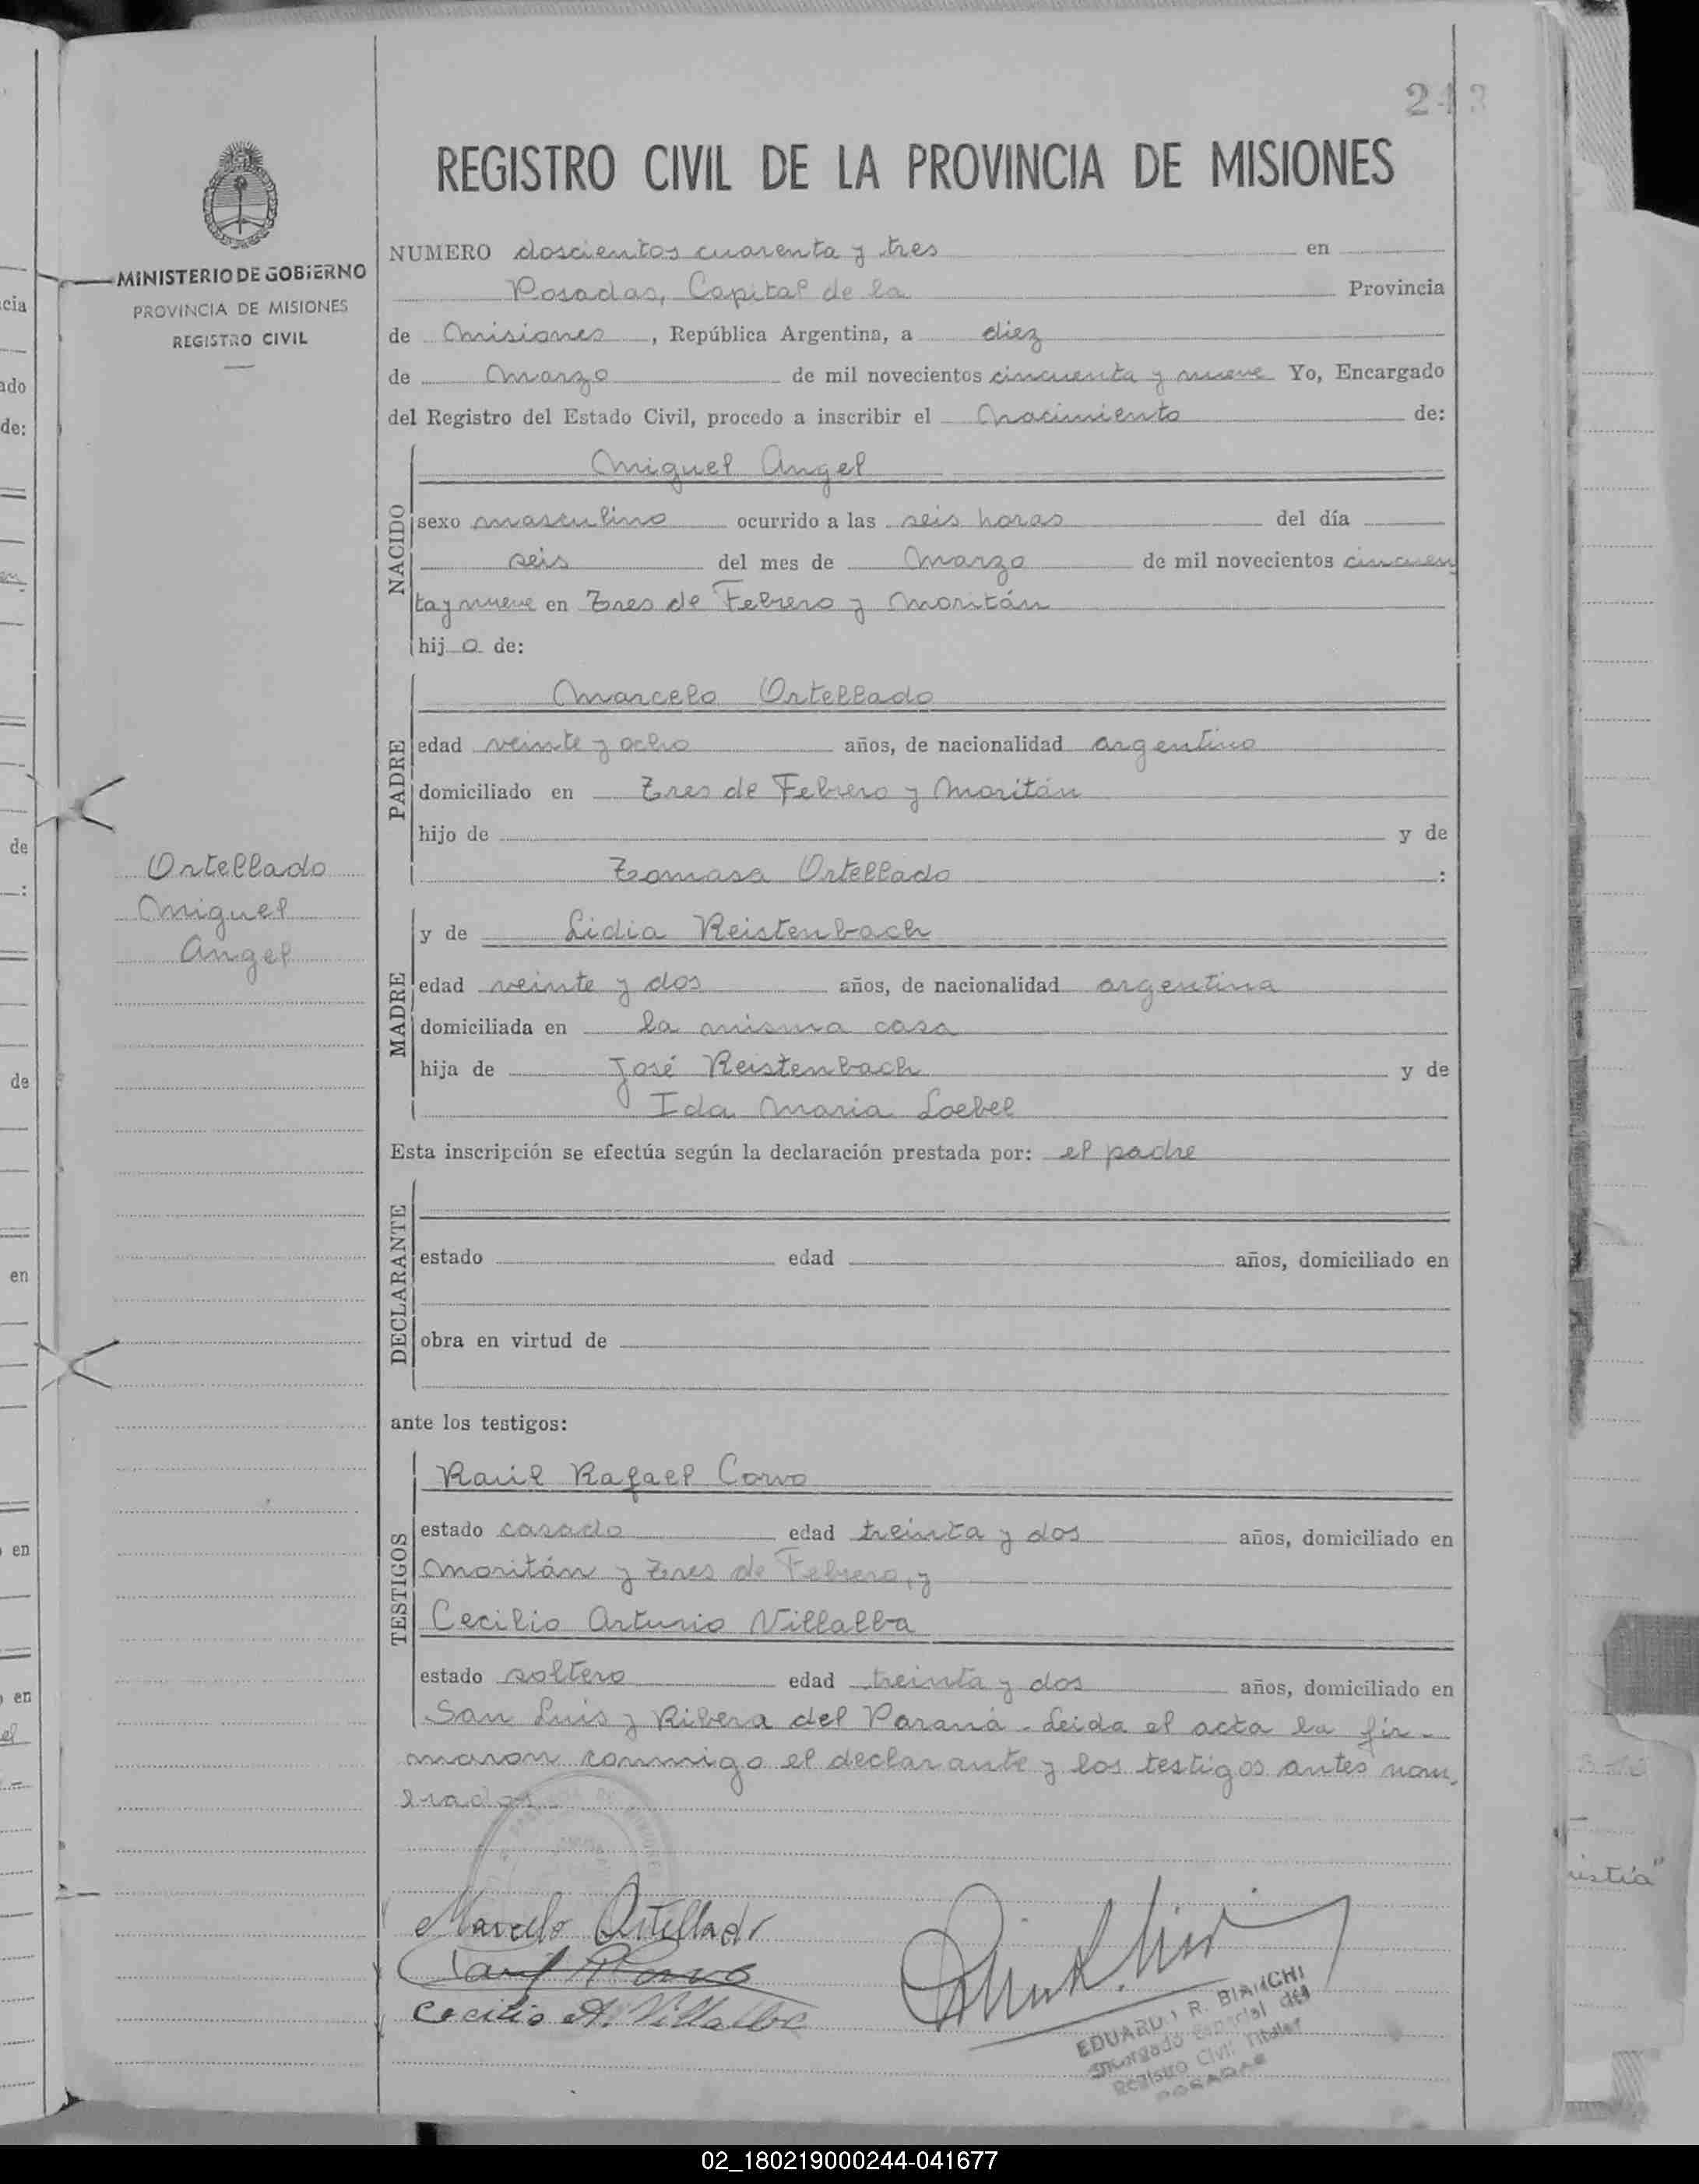 243
REGISTRO CIVIL DE LA PROVINCIA DE MISIONES
MINISTERIO DE GOBIERNO
PROVINCIA DE MISIONES
REGISTRO CIVIL
NUMERO doscientos cuarenta y tres en
Posadas, Capital de la Provincia
de Misiones, República Argentina, a diez
de Marzo de mil novecientos cincuenta y nueve Yo, Encargado
del Registro del Estado Civil, procedo a inscribir el Nacimiento de:
NACIDO
Miguel Angel
sexo masculino ocurrido a las seis horas del día
seis del mes de Marzo de mil novecientos cincuen
ta y nueve en Tres de Febrero y Moritán
hijo de:
PADRE
Marcelo Ortellado
edad veinte y ocho años, de nacionalidad argentino
domiciliado en Tres de Febrero y Moritán
hijo de y de
Tomasa Ortellado :
Ortellado
Miguel
Angel
MADRE
y de Lidia Reistenbach
edad veinte y dos años, de nacionalidad argentina
domiciliada en la misma casa
hija de José Reistenbach y de
Ida Maria Loebel
Esta inscripción se efectúa según la declaración prestada por: el padre
DECLARANTE
estado edad años, domiciliado en
obra en virtud de
ante los testigos:
TESTIGOS
Raúl Rafael Corvo
estado casado edad treinta y dos años, domiciliado en
Moritán y Tres de Febrero, y
Cecilio Arturio Villalba
estado soltero edad treinta y dos años, domiciliado en
San Luis y Ribera del Paraná. Leida el acta la fir-
maron conmigo el declarante y los testigos antes nom-
brados.
Marcelo Ortellado
Cecilio A. Villalba
EDUARDO R. BIANCHI
Encargado Especial del
Registro Civil Titular
POSADAS
cia
ado
de:
de
de
en
en
en
el
02_180219000244-041677